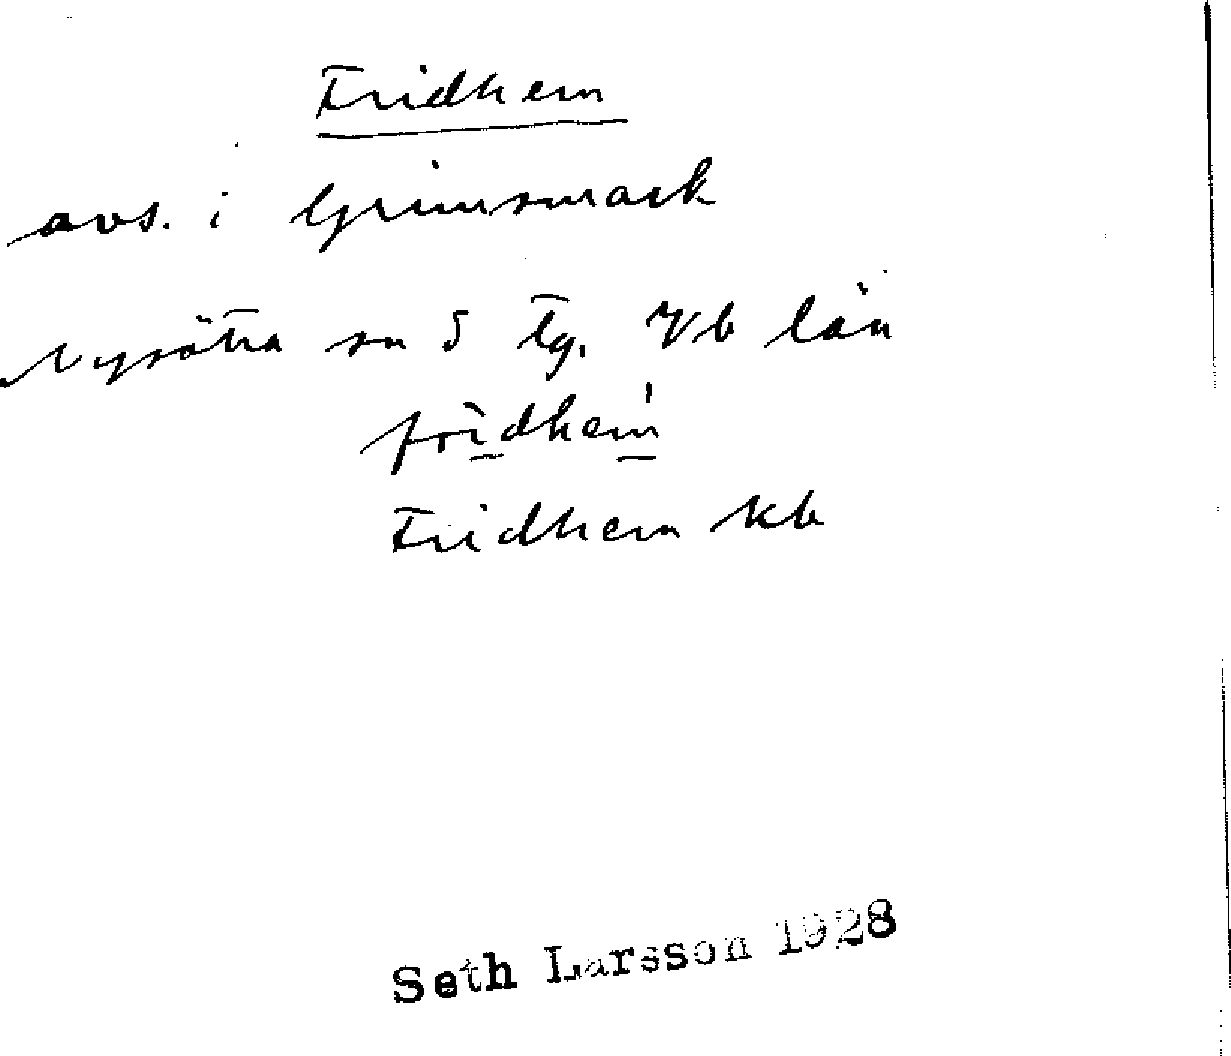 Fridhem
avs. i Grimsmark
Nysätra sn S Tg. Vb län
fridhem
Fridhem kb
Seth Larsson 1928